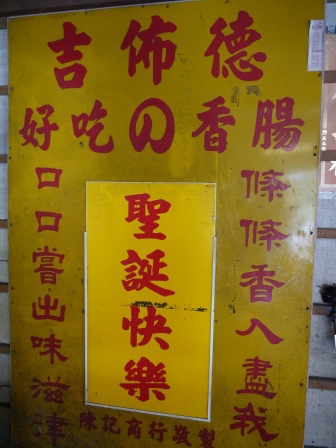 吉佈德
好吃の香腸
條條香入盡我
聖誕快樂
口口嘗出味滋津
陳記商行敬製